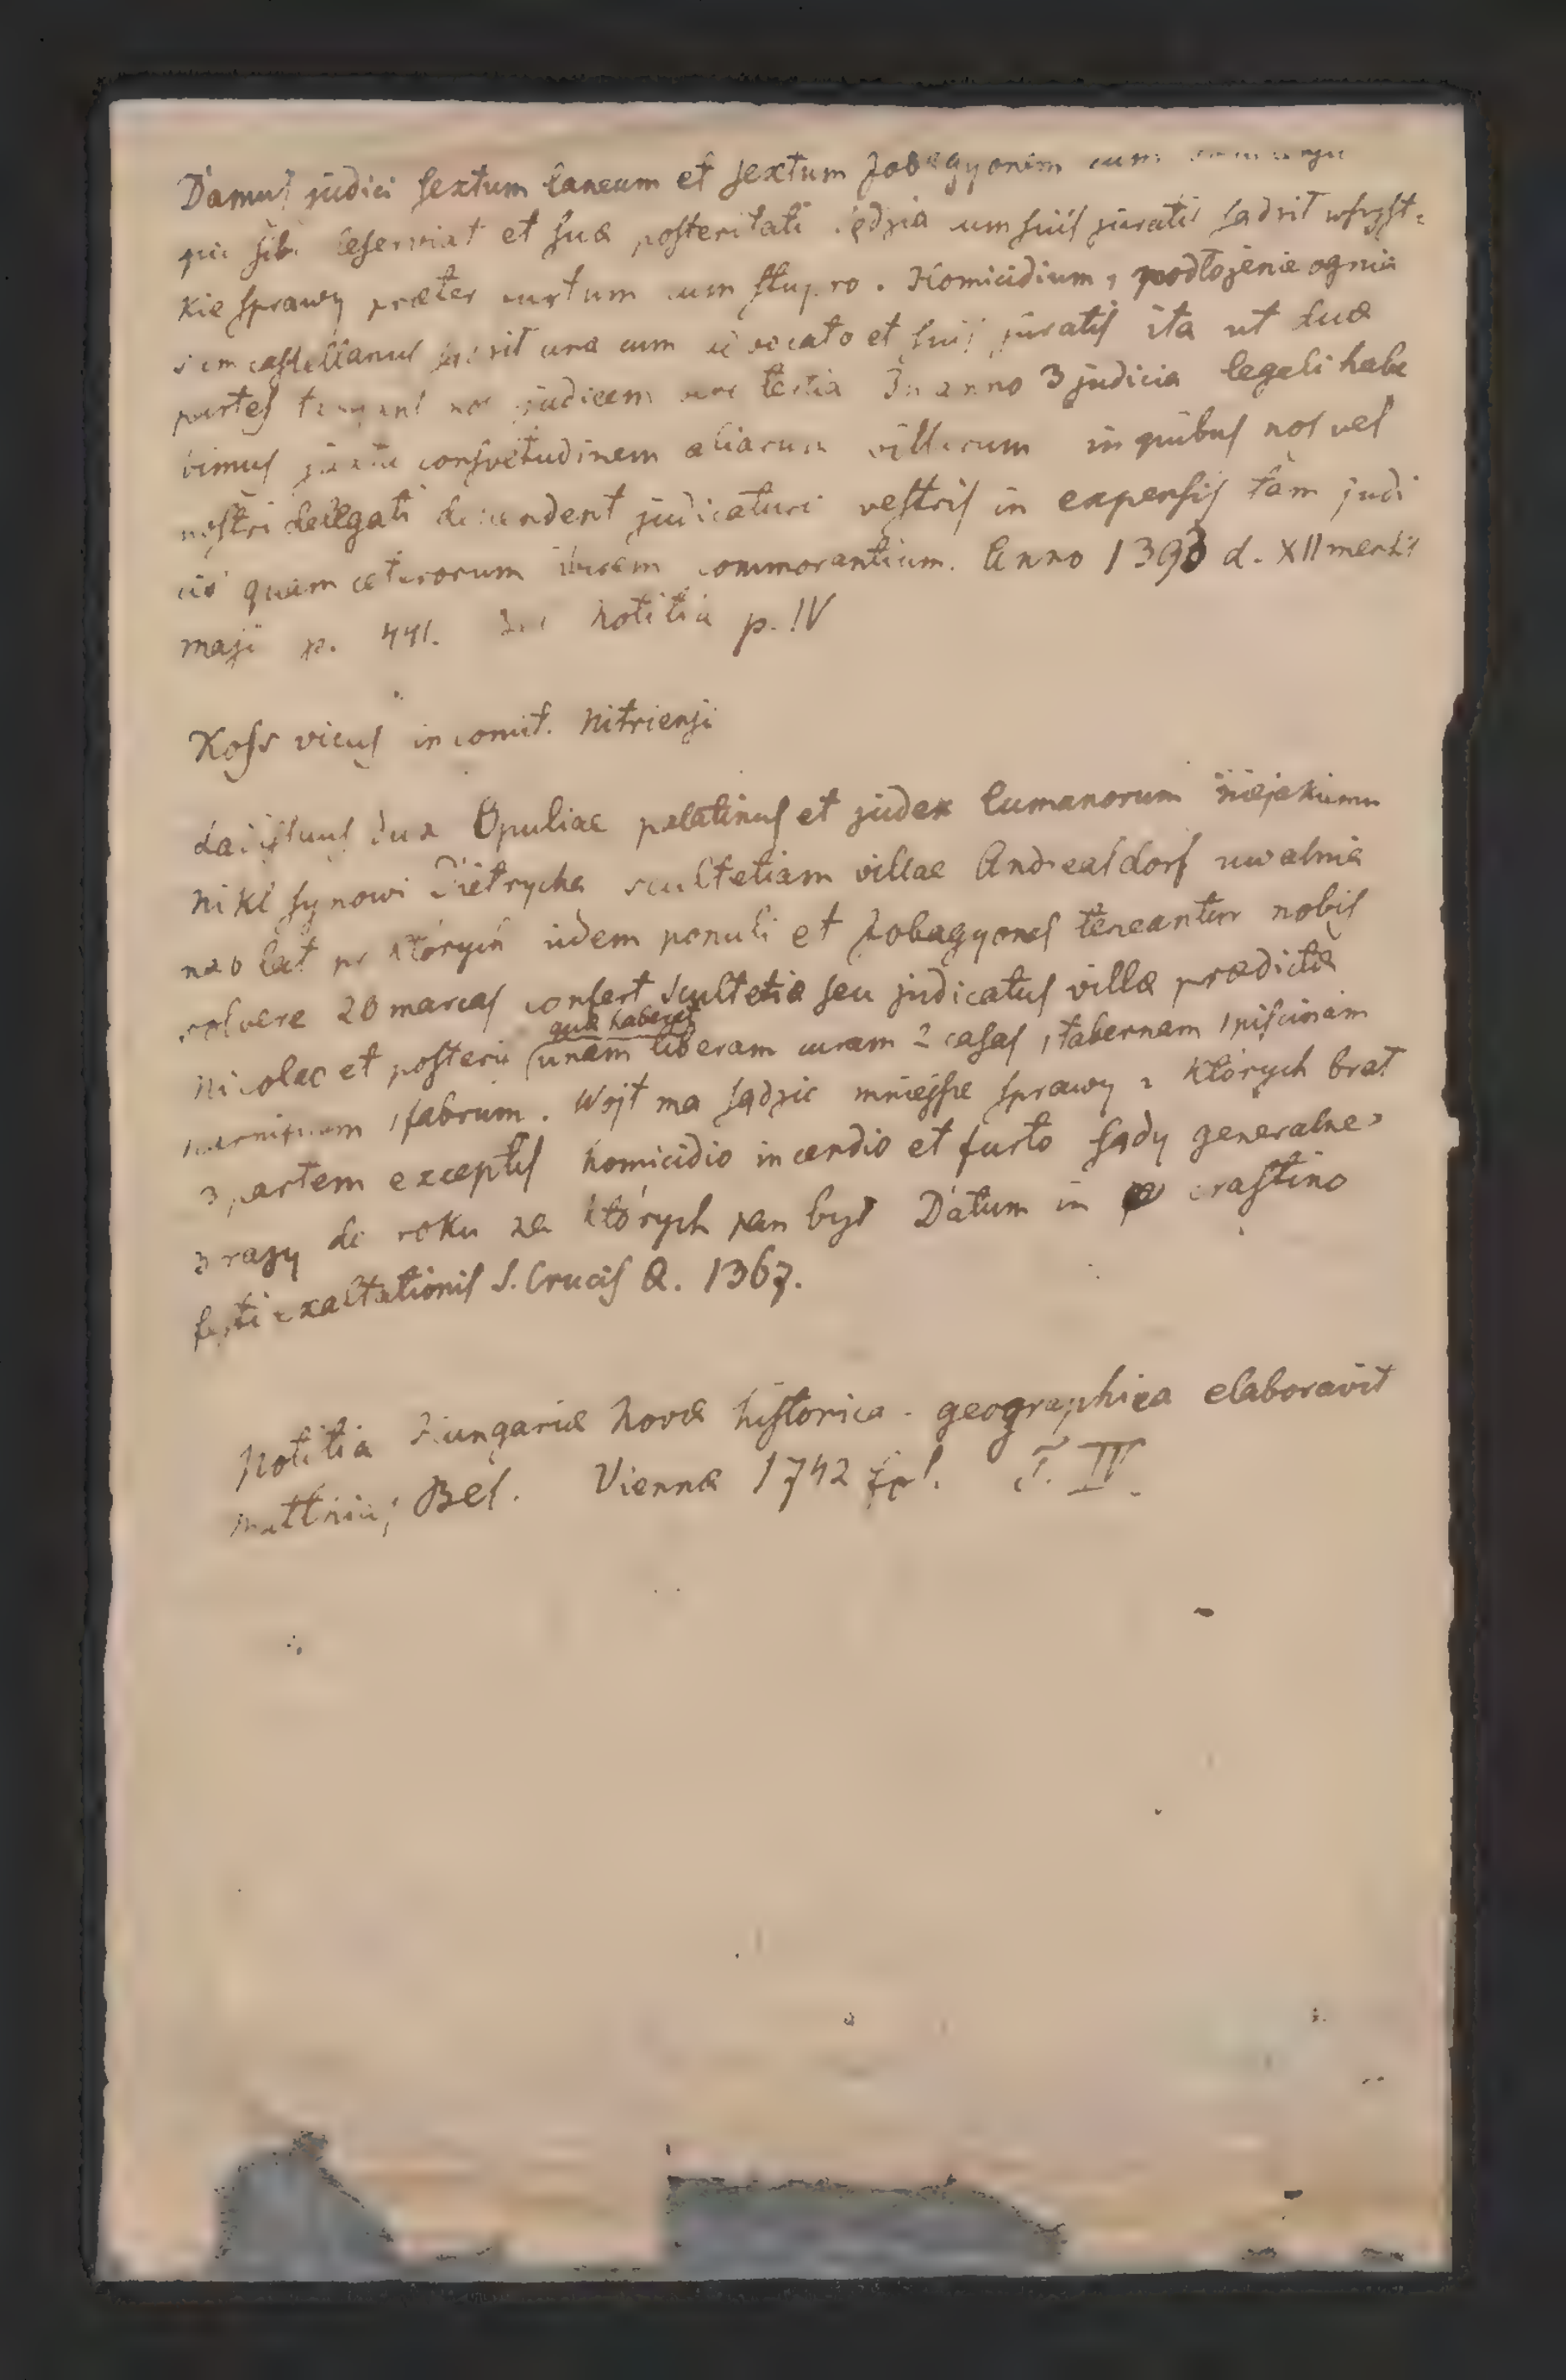 Damus judici sextum laneum et sextum Jobagyonem cum
qui sibi deserviat et suæ posteritati sędzia cum suis juratis sądzit wszyst=
kie sprawy præter furtum cum stupro. Homicidium, podłożenie ognia
castellanus cum et suis juratis ita ut duæ
partes nos judicem vero tertia In anno 3 judicia legali habe
bimus juxta consvetudinem aliarum villarum in quibus nos vel
nostri delegati descendent judicaturi vestris in expensis tam judi
cis quam ceterorum ibidem commorantium. Anno 1393 d. XII mensis
maji p. 441. Notitia p. IV
Koss vicus in comit. Nitriensi
Ladislaus dux Opuliae palatinus et judex Cumanorum niejakiemu
Nikl synowi Dietrycha scultetiam villae Andreasdorf uwalnia
na lat po których iidem populi et Jobagyones teneantur nobis
solvere 20 marcas confert scultetiæ seu judicatus villæ prædictæ
quæ haberet
Nicolao et posteris unam liberam curam 2 casas, 1 tabernam 1 piscinam
1 fabrum. Wójt ma sądzić mniejsze sprawy z których brał
3 partem exceptis homicidio incendio et furto sądy generalne
3 razy do roku na których pan był Datum in crastino
festi exaltationis S. Crucis A. 1367.
Notitia Hungariæ Novæ historica-geographica elaboravit
Matthias Bel. Viennæ 1742 fol. T. IV.